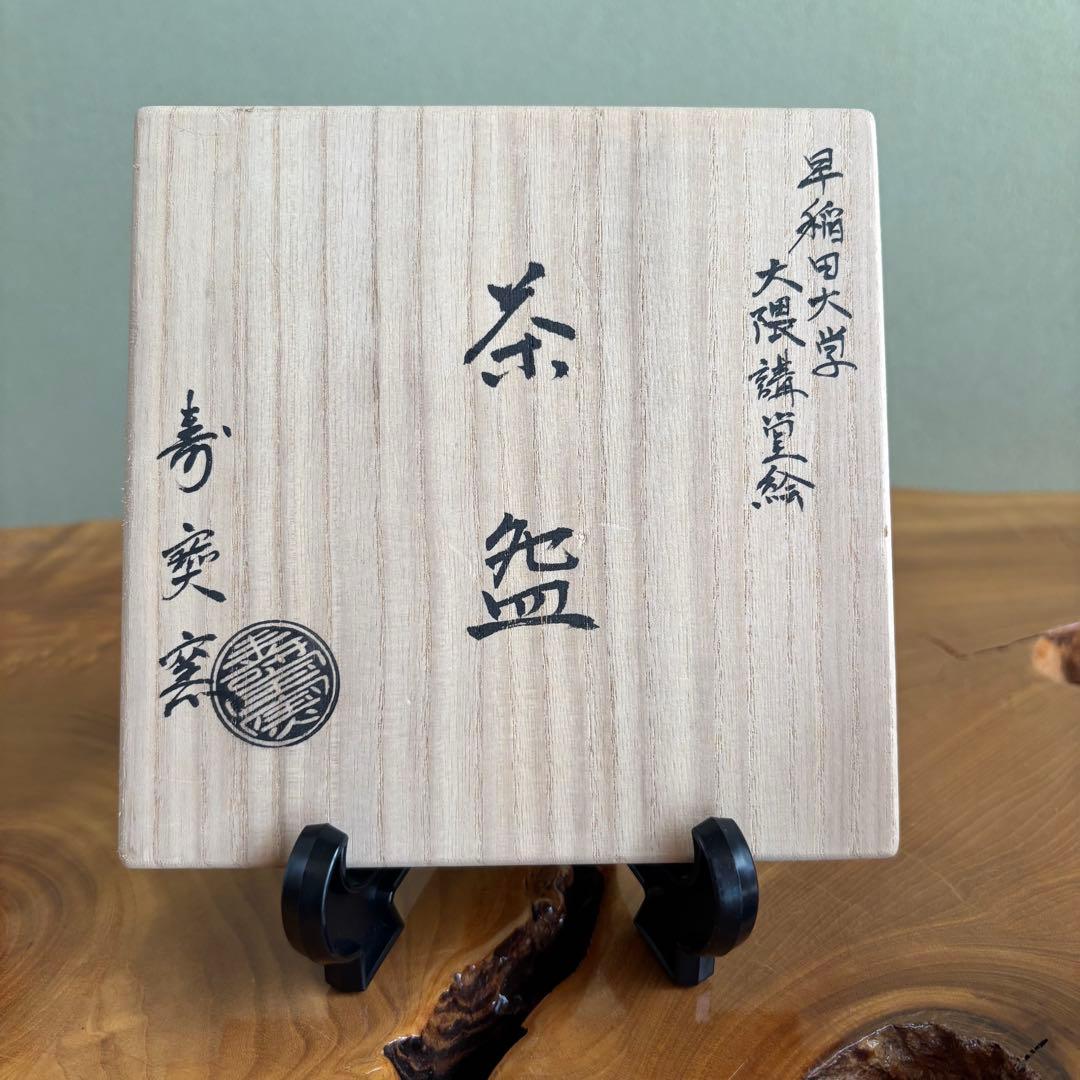 早稲田大学
大隈講堂絵
茶盌
寿寳窯